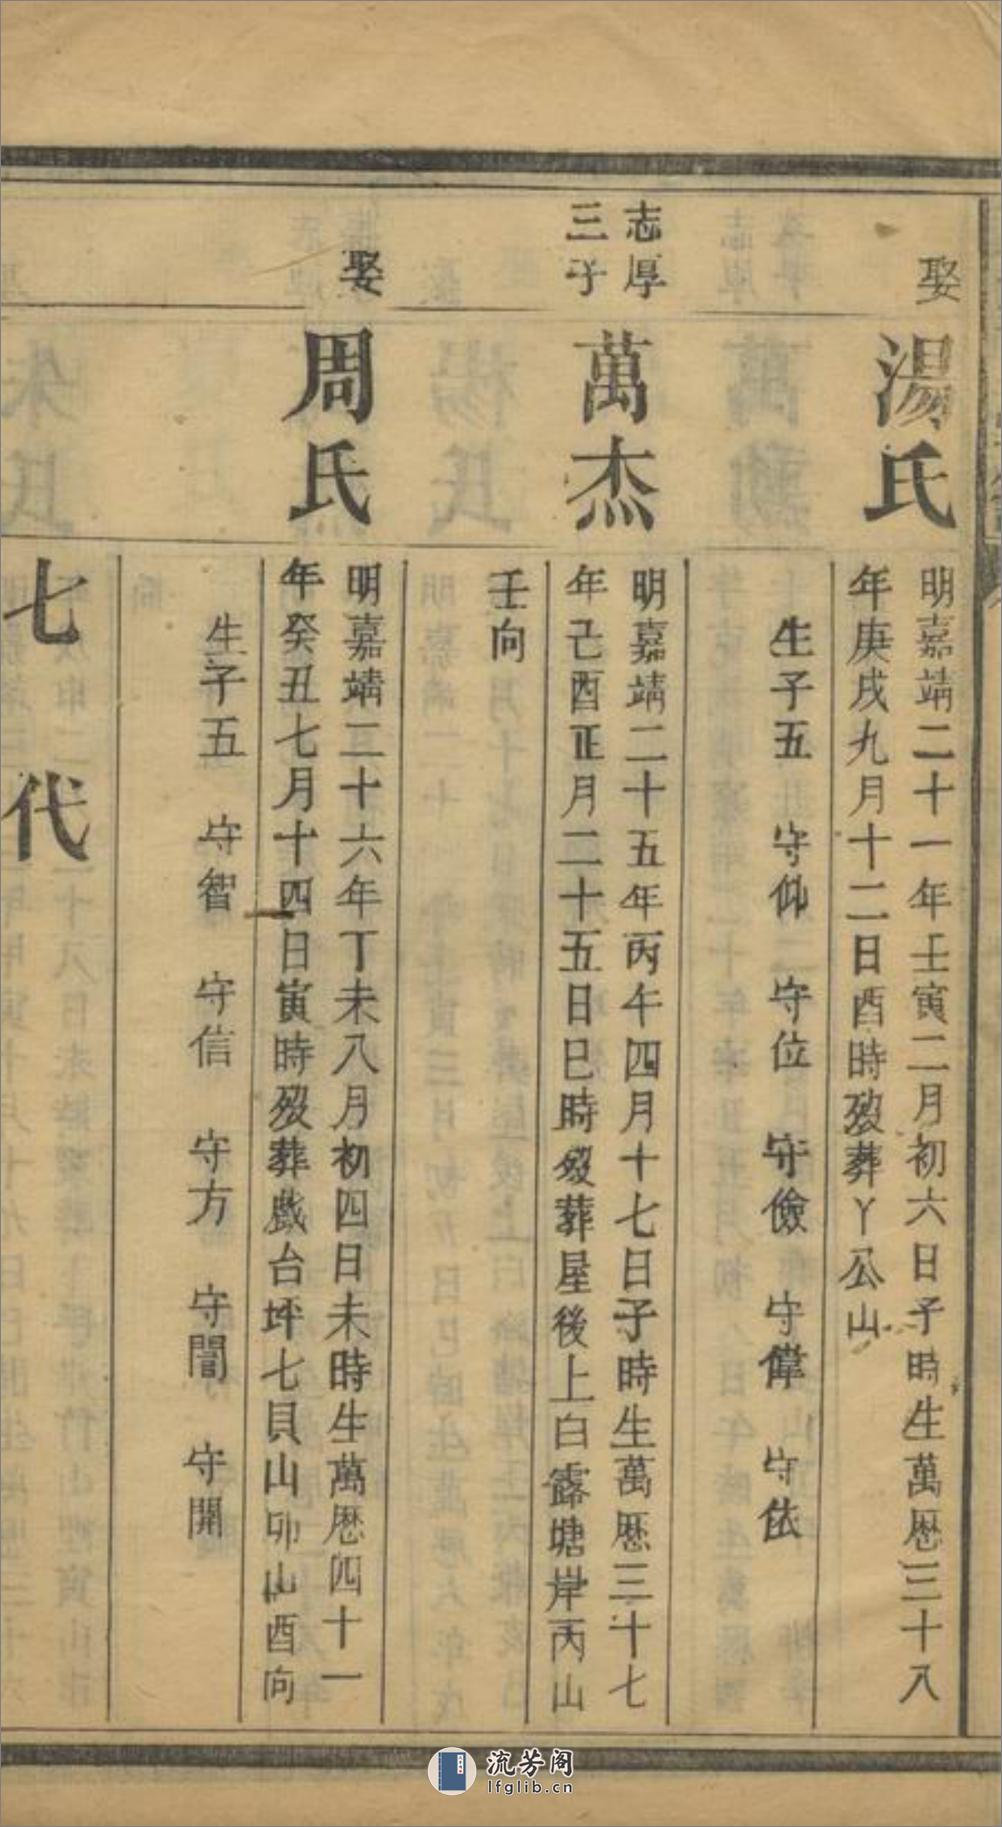 娶
湯氏
明嘉靖二十一年壬寅二月初六日子時生萬厯三十八
年庚戌九月十二日酉時殁葬丫公山
生子五 守仰 守位 守儉 守偉 守依
志厚
三子
萬杰
明嘉靖二十五年丙午四月十七日子時生萬厯三十七
年己酉正月二十五日巳時殁葬屋後上白露塘岸丙山
壬向
娶
周氏
明嘉靖二十六年丁未八月初四日未時生萬厯四十一
年癸丑七月十四日寅時殁葬戯台坪七貝山卯山酉向
生子五 守智 守信 守方 守誾 守開
七代
流芳阁
lfglib.cn